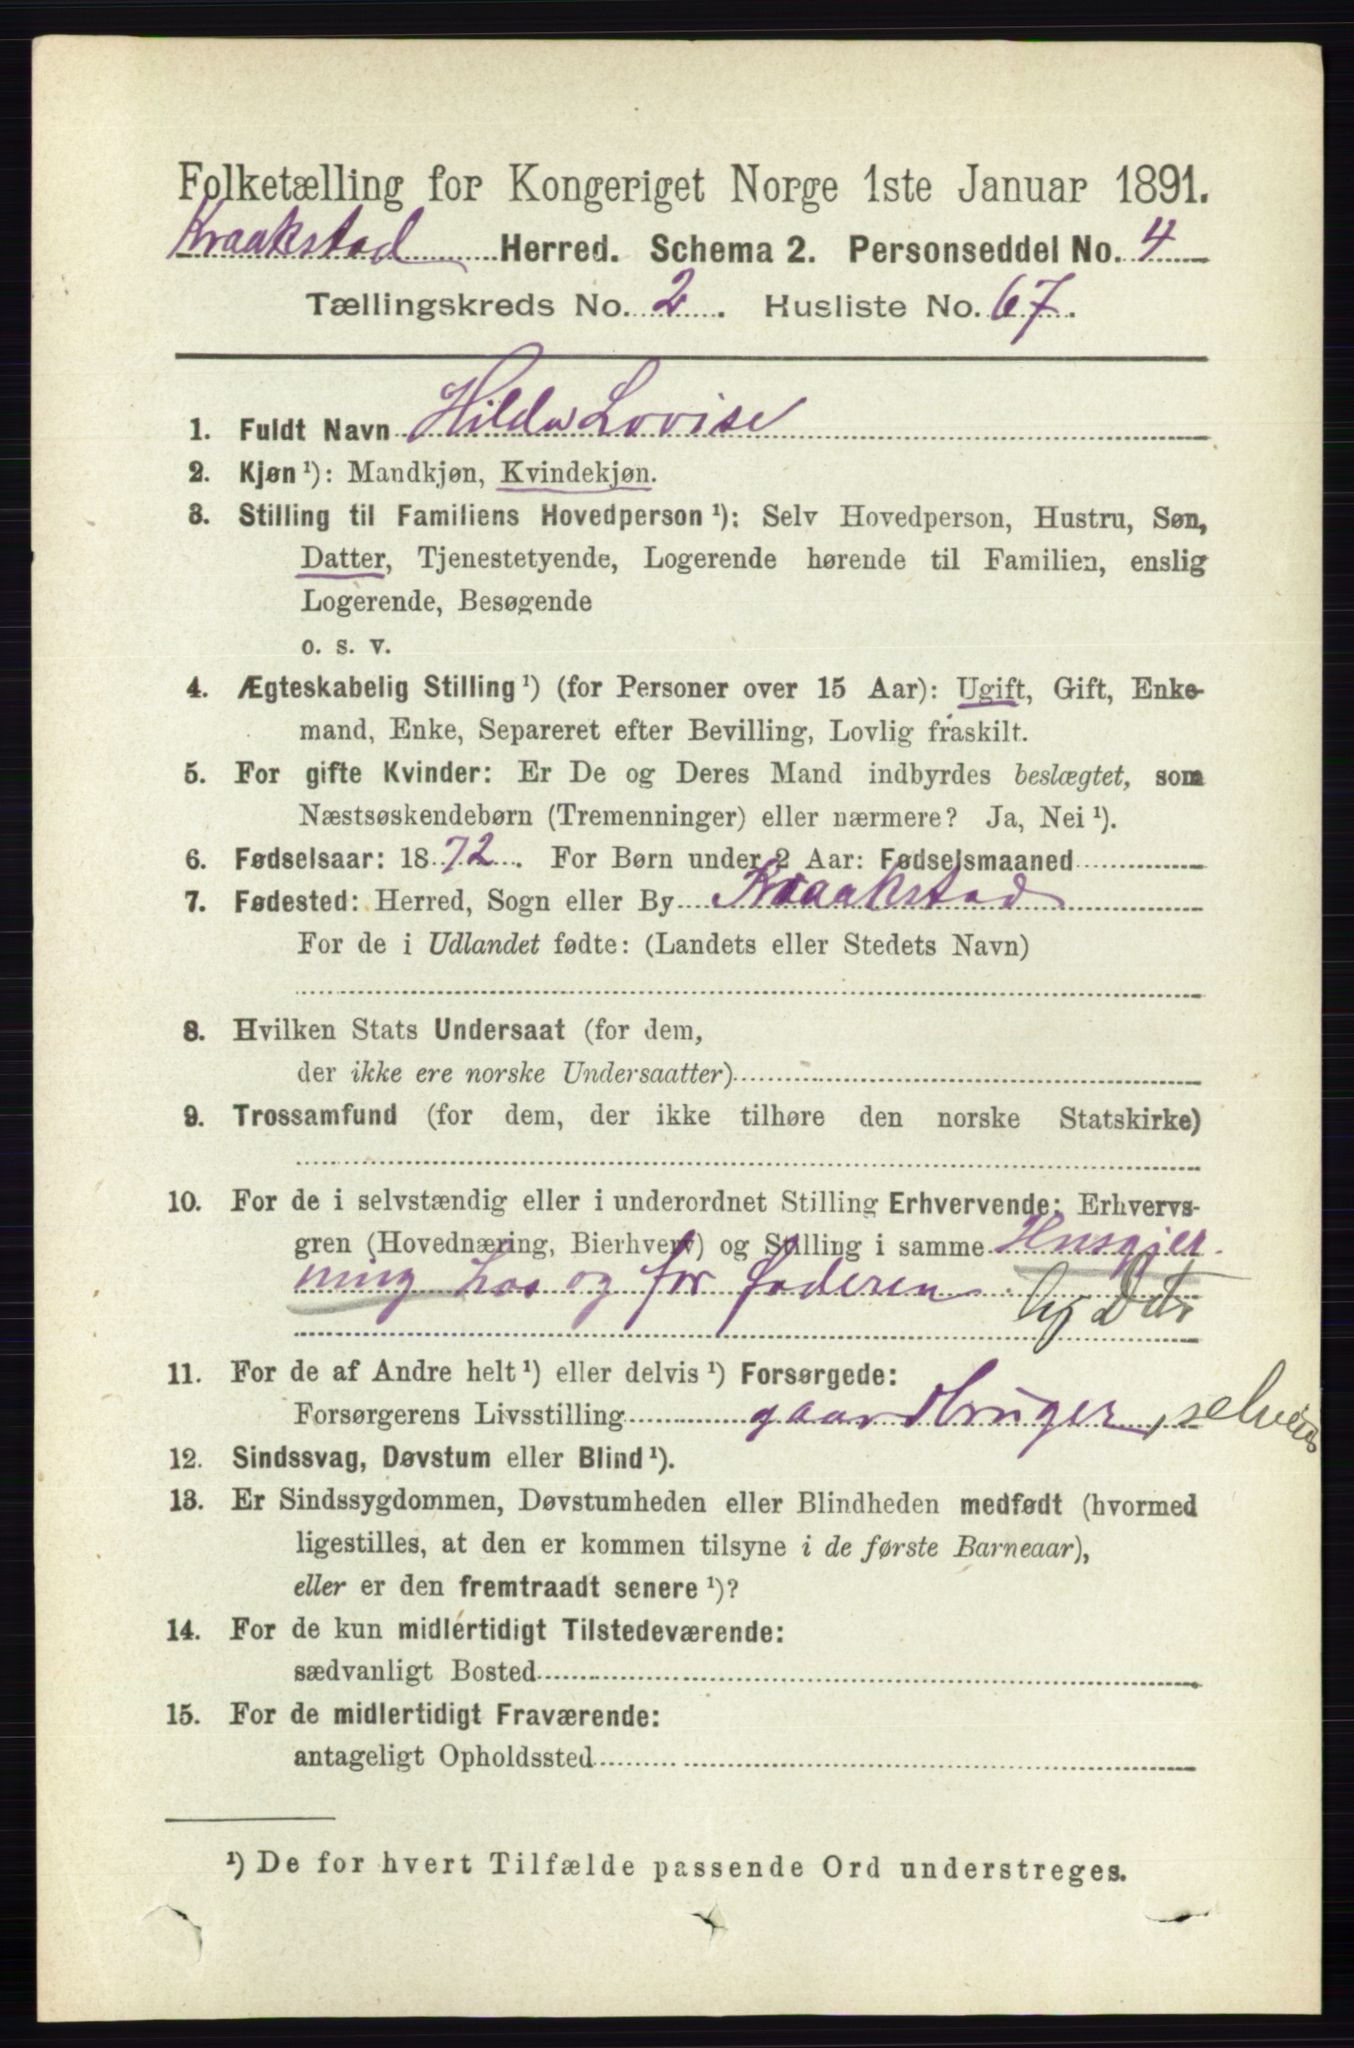 Folketælling for Kongeriget Norge 1ste Januar 1891.
Kraakstad Herred. Schema 2. Personseddel No. 4
Tællingskreds No. 2. Husliste No. 67.
1. Fuldt Navn Hilda Lovise
2. Kjøn ¹): Mandkjøn, Kvindekjøn.
3. Stilling til Familiens Hovedperson ¹): Selv Hovedperson, Hustru, Søn,
Datter, Tjenestetyende, Logerende hørende til Familien, enslig
Logerende, Besøgende
o. s. v.
4. Ægteskabelig Stilling ¹) (for Personer over 15 Aar): Ugift, Gift, Enke-
mand, Enke, Separeret efter Bevilling, Lovlig fraskilt.
5. For gifte Kvinder: Er De og Deres Mand indbyrdes beslægtet, som
Næstsøskendebørn (Tremenninger) eller nærmere? Ja, Nei ¹).
6. Fødselsaar: 1872. For Børn under 2 Aar: Fødselsmaaned
7. Fødested: Herred, Sogn eller By Kraakstad
For de i Udlandet fødte: (Landets eller Stedets Navn)
8. Hvilken Stats Undersaat (for dem,
der ikke ere norske Undersaatter)
9. Trossamfund (for dem, der ikke tilhøre den norske Statskirke)
10. For de i selvstændig eller i underordnet Stilling Erhvervende: Erhvervs-
gren (Hovednæring, Bierhverv) og Stilling i samme Husgjer-
ning hos og for faderen.
11. For de af Andre helt ¹) eller delvis ¹) Forsørgede:
Forsørgerens Livsstilling gaardbruger, selveier
12. Sindssvag, Døvstum eller Blind ¹).
13. Er Sindssygdommen, Døvstumheden eller Blindheden medfødt (hvormed
ligestilles, at den er kommen tilsyne i de første Barneaar),
eller er den fremtraadt senere ¹)?
14. For de kun midlertidigt Tilstedeværende:
sædvanligt Bosted
15. For de midlertidigt Fraværende:
antageligt Opholdssted
¹) De for hvert Tilfælde passende Ord understreges.